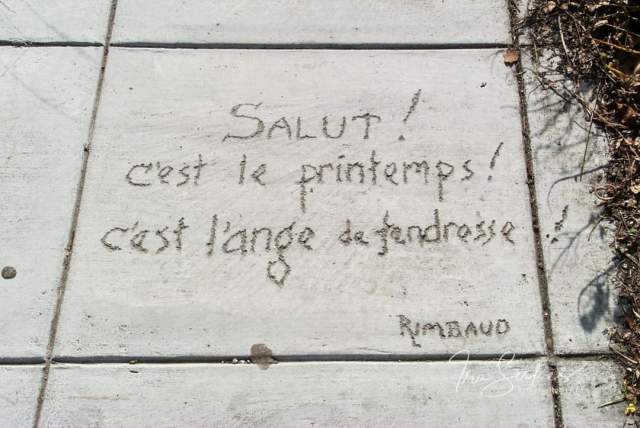 SALUT!
c'est le printemps!
c'est l'ange de tendresse!
RIMBAUD